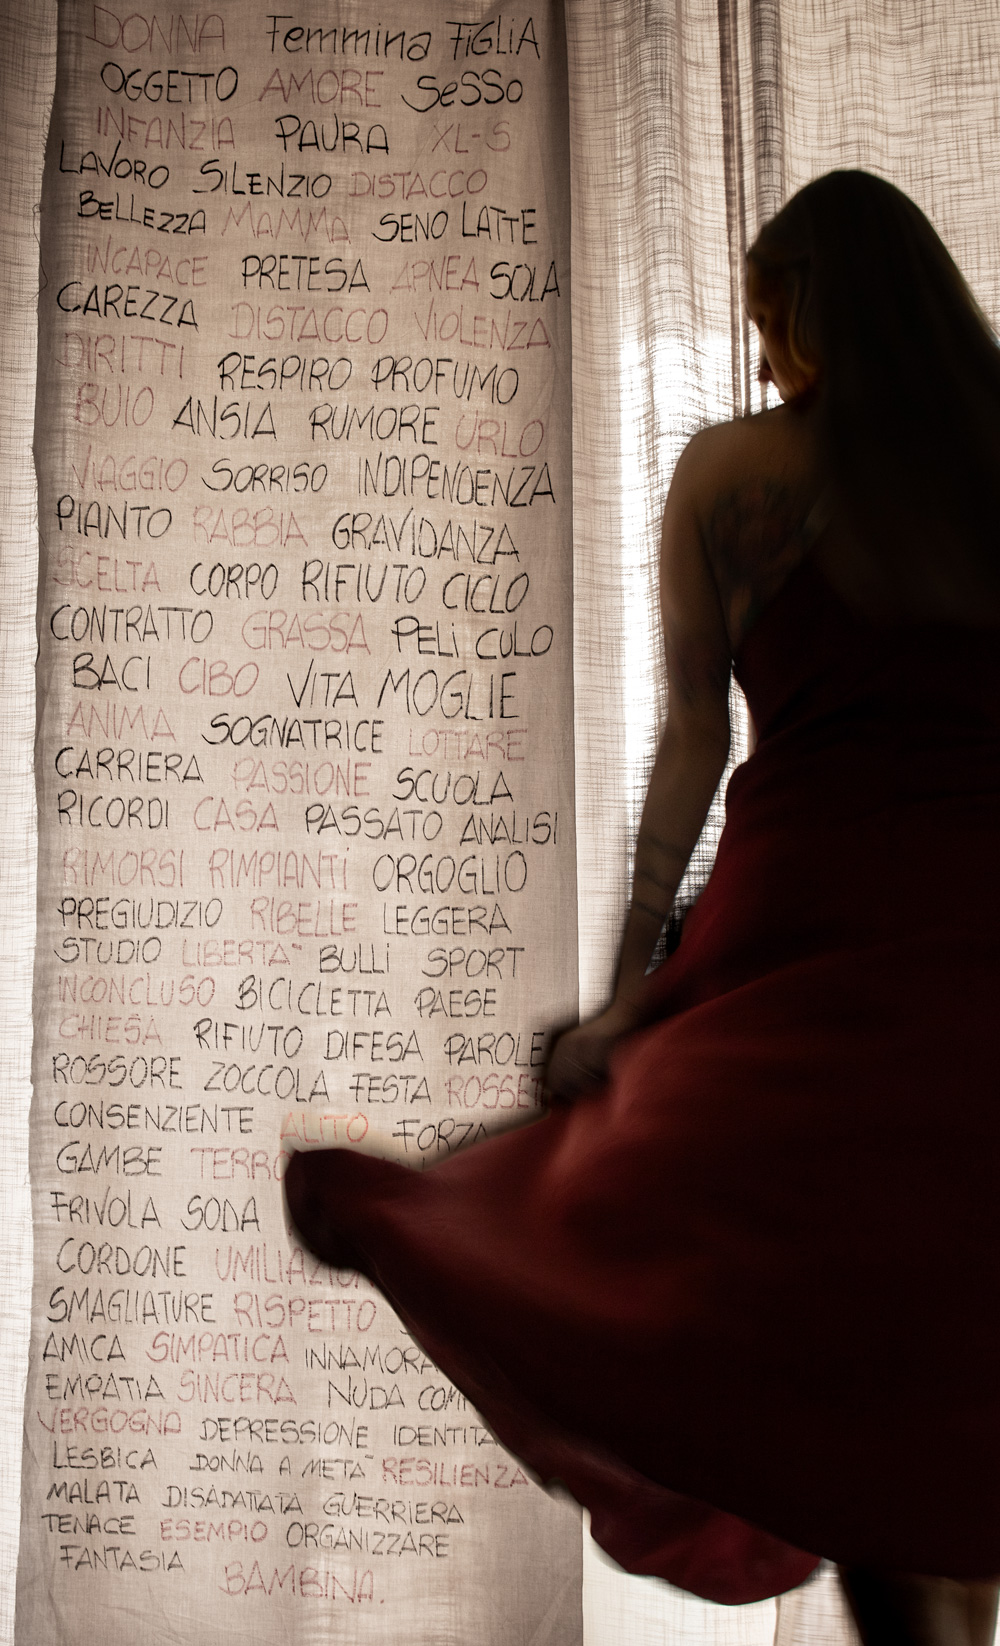 DONNA Femmina FiGLiA
OGGETTO AMORE SeSSo
INFANZIA PAURA XL-S
LAVORO SILENZIO DISTACCO
BELLEZZA MAMMA SENO LATTE
INCAPACE PRETESA APNEA SOLA
CAREZZA DISTACCO VIOLENZA
DIRITTI RESPIRO PROFUMO
BUIO ANSIA RUMORE URLO
VIAGGIO SORRISO INDIPENDENZA
PIANTO RABBIA GRAVIDANZA
SCELTA CORPO RIFIUTO CICLO
CONTRATTO GRASSA PELI CULO
BACI CIBO VITA MOGLIE
ANIMA SOGNATRICE LOTTARE
CARRIERA PASSIONE SCUOLA
RICORDI CASA PASSATO ANALISI
RIMORSI RIMPIANTi ORGOGLIO
PREGIUDIZIO RIBELLE LEGGERA
STUDIO LIBERTA~ BULLi SPORT
INCONCLUSO BICICLETTA PAESE
CHIESA RIFIUTO DIFESA PAROLE
ROSSORE ZOCCOLA FESTA ROSSET
CONSENZIENTE ALITO FORZA
GAMBE TERRO
FRIVOLA SODA
CORDONE UMILIAZION
SMAGLIATURE RISPETTO
AMICA SIMPATICA INNAMORA
EMPATIA SINCERA NUDA COM
VERGOGNA DEPRESSIONE IDENTITA
LESBICA DONNA A META~ RESILIENZA
MALATA DISADATTATA GUERRIERA
TENACE ESEMPIO ORGANIZZARE
FANTASIA
BAMBINA.